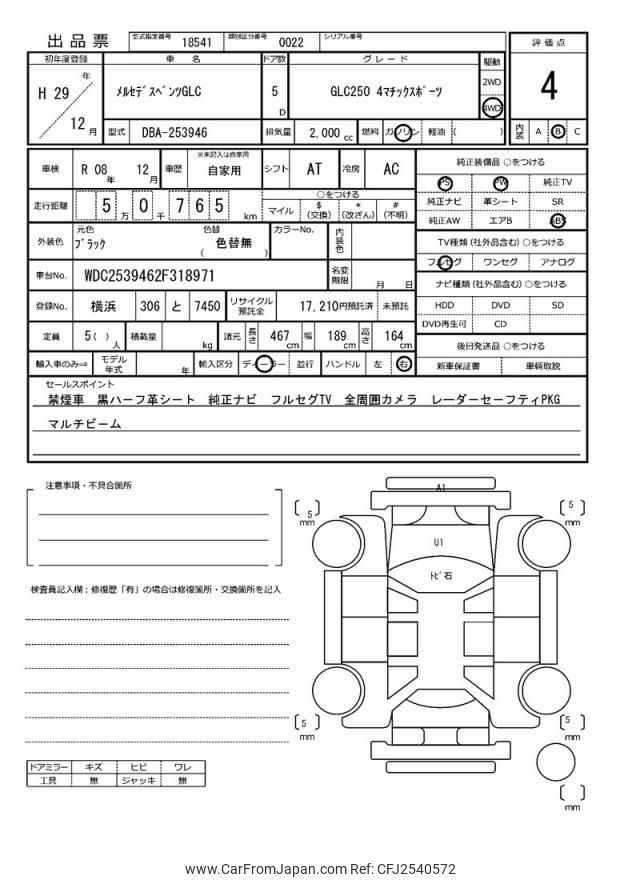 出品票 型式指定番号 18541 類別区分番号 0022 シリアル番号
初年度登録 車 名 ドア数 グレード 駆動 評価点
H 29 年 12 月 メルセデスベンツGLC 5 D GLC250 4マチックスポーツ 2WD 4WD 4
型式 DBA-253946 排気量 2,000 cc 燃料 ガソリン 軽油 ( ) 内装 A B C
車検 R 08 年 12 月 車歴 ※未記入は自家用 自家用 シフト AT 冷房 AC 純正装備品 ○をつける
PS PW 純正TV
走行距離 5 万 0 千 7 6 5 km ○をつける マイル $ (交換) * (改ざん) # (不明)
純正ナビ 革シート SR
純正AW エアB ABS
外装色 元色 ブラック 色替 ( 色替無 ) カラーNo. 内装色
TV種類 (社外品含む) ○をつける
フルセグ ワンセグ アナログ
車台No. WDC2539462F318971 名変期限 月 日
ナビ種類 (社外品含む) ○をつける
登録No. 横浜 306 と 7450 リサイクル預託金 17,210円預託済 未預託
HDD DVD SD
DVD再生可 CD
定員 5 ( ) 人 積載量 kg 諸元 長さ 467 cm 幅 189 cm 高さ 164 cm
後日発送品 ○をつける
輸入車のみ⇒ モデル年式 年 輸入区分 ディーラー 並行 ハンドル 左 右 新車保証書 車輌取説
セールスポイント
禁煙車 黒ハーフ革シート 純正ナビ フルセグTV 全周囲カメラ レーダーセーフティPKG
マルチビーム
注意事項・不具合箇所
A1
5 mm
5 mm
U1
トビ石
検査員記入欄：修復歴「有」の場合は修復箇所・交換箇所を記入
5 mm
5 mm
mm
ドアミラー キズ ヒビ ワレ
工具 無 ジャッキ 無
www.CarFromJapan.com Ref: CFJ2540572